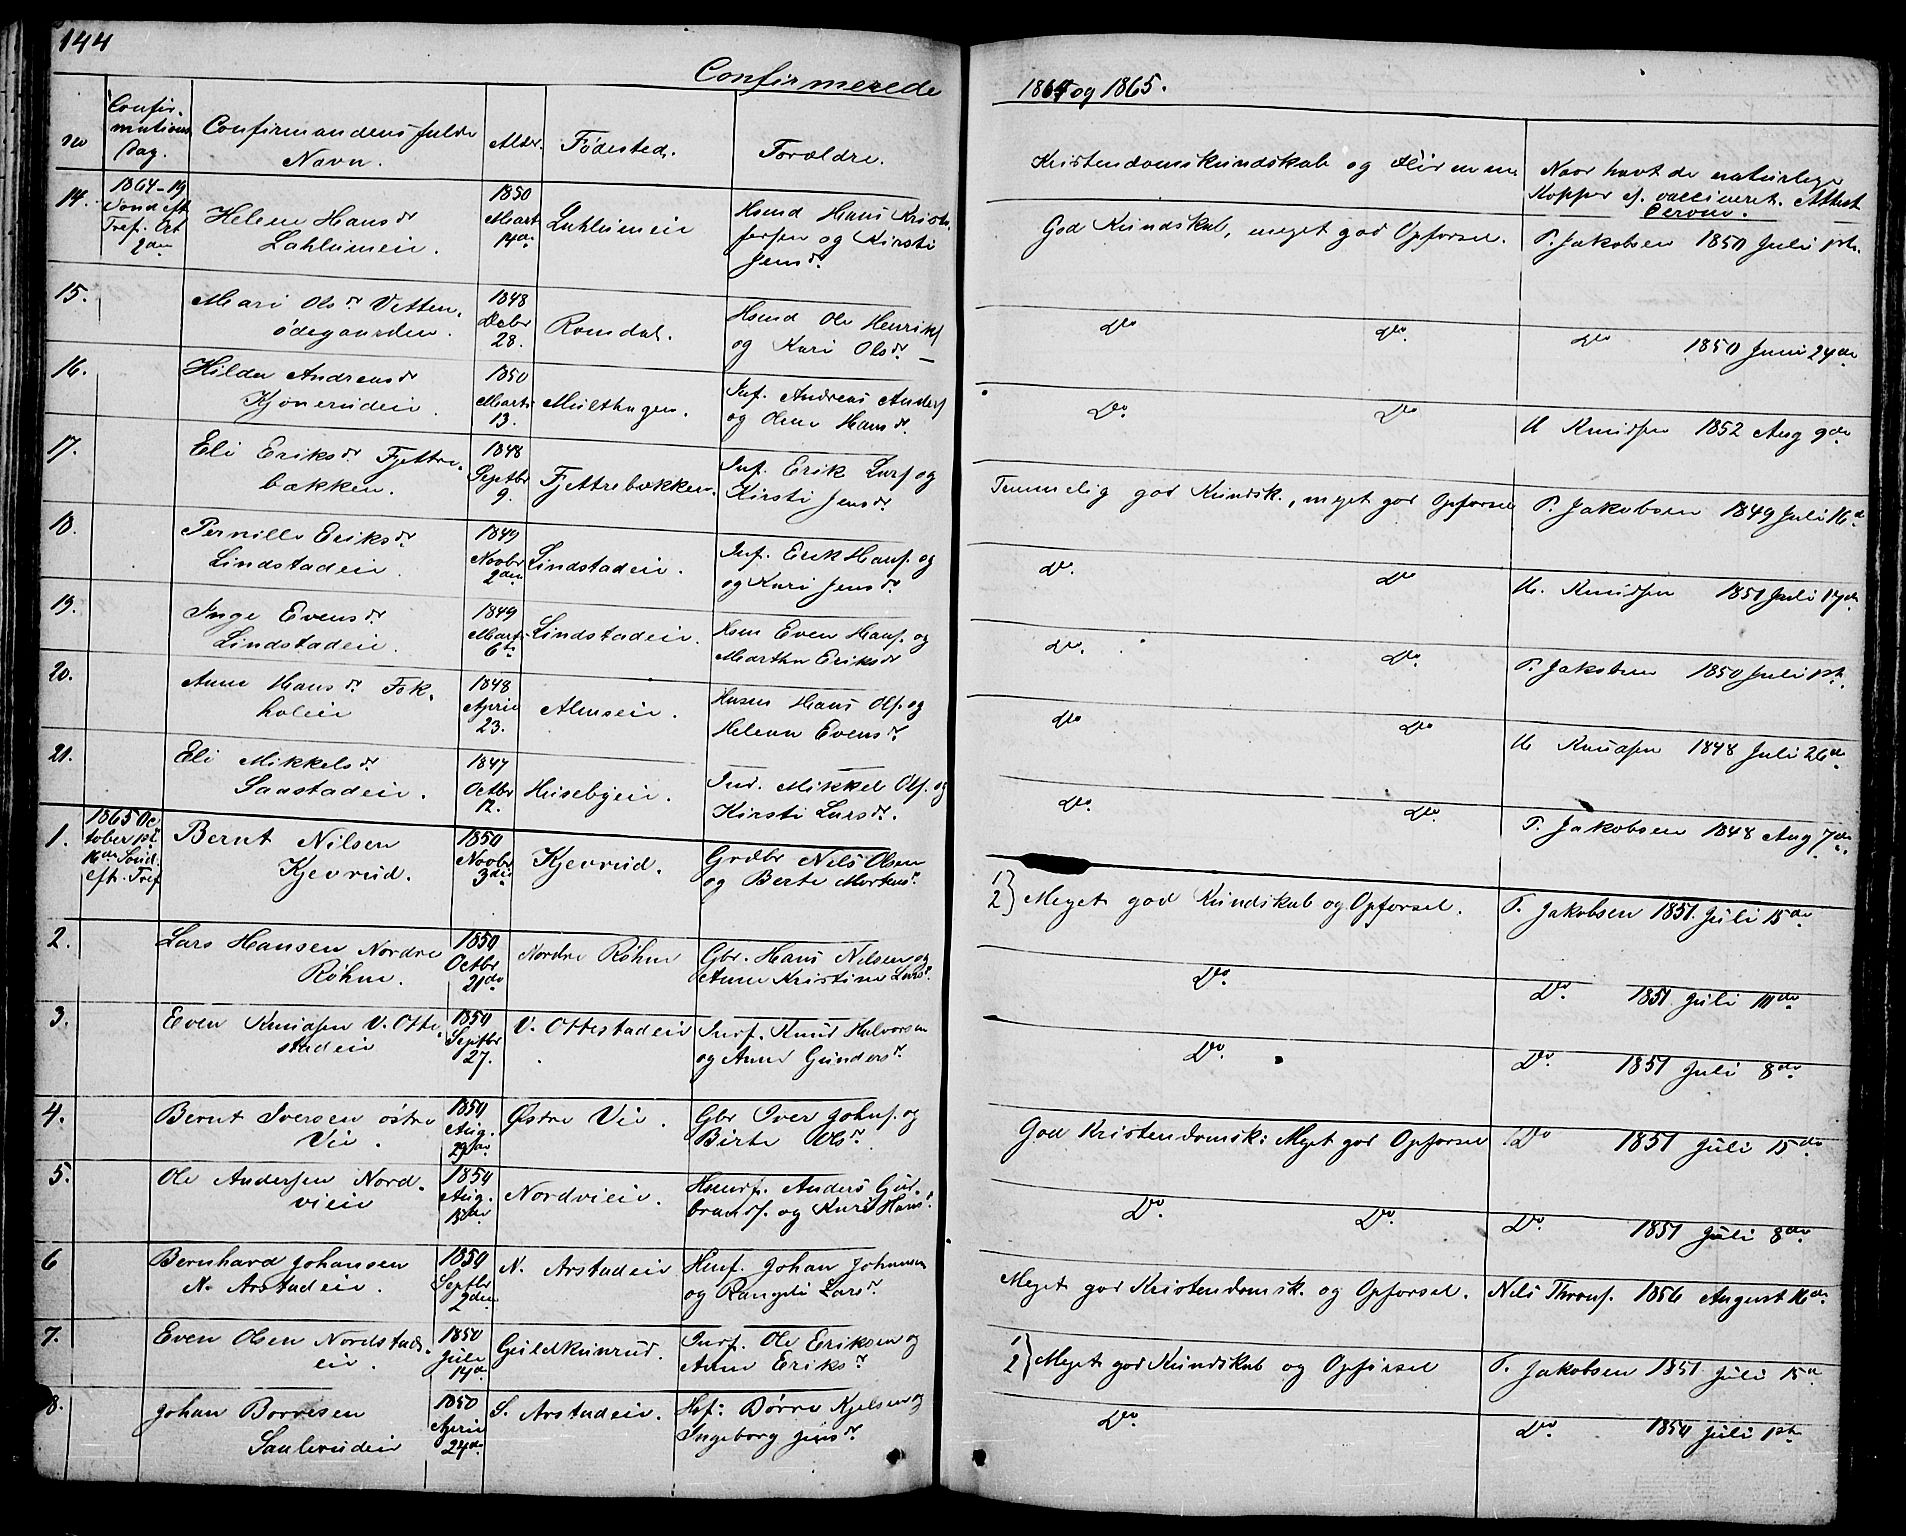 144
Confirmerede 1864 og 1865.
No
Confir-
mations
Dag.
Confirmandens fulde
Navn.
Alder.
Fødested.
Forældre.
Kristendomskundskab og
Naar havt de naturlige
Kopper el. vaccineret. Attest
derom.
14.
1864-19
Sond eft
Tref. Oct
2den
Helene Hansdr
Lahlumeie.
1850
Mart
14de
Lahlumeie
Hsmd Hans Krist.
fersen og Kirsti
Jensdr.
God Kundskab, meget god Opførsel.
P. Jakobsen 1850 Juli 1ste.
15.
Mari Olsdr Vetten,
ødegaarden.
1848
Decbr
28.
Romdal.
Hsmd Ole Henriks
og Kari Olsdr.
Do Do. do 1850 Juni 24de
16.
Hilda Andreasdr
Kjonerudeie.
1850
Marts
13.
Multhagen.
Inf. Andreas Anders
og Olene Hansdr
Do. Do U Knudsen 1852 Aug 9de
17.
Eli Eriksdr Fjettre-
bakken.
1848
Septbr
9.
Fjettrebakken.
Inf. Erik Larsf og
Kirsti Jensdr.
Temmelig god Kundsk., meget god Opførsel
P. Jakobsen 1849 Juli 16d
18.
Pernille Eriksdr.
Lindstadeie.
1849
Novbr
2den
Lindstadeie.
Inf. Erik Hansf. og
og Kari Jensdr.
do. do U. Knudsen 1851 Juli 17de.
19.
Inge Evensdr
Lindstadeie.
1849
Marts
6te
Lindstadeie.
Hsm Even Hansf. og
Marthe Eriksdr
do. Do. P. Jakobsen 1850 Juli 1ste.
20.
Anne Hansdr. Fok-
holeie
1848
April
23.
Almseie.
Husm Hans Olsf. og
Helene Evensdr
do Do U Knudsen 1848 Juli 26de
21.
Eli Mikkelsdr.
Saastadeie.
1847
Octbr
12.
Husebyeie.
Ind. Mikkel Olsf. og
Kirsti Larsdr.
do. do. P. Jakobsen 1848 Aug 7de.
1.
1865 Oc
tober 1ste
16de Sønd.
efth. Tref
Bernt Nilsen
Kjevrud.
1850
Novbr
3die
Kjevrud.
Grdbr Nils Olsen
og Berte Mortensdr.
1
2 } Meget god Kundskab og Opførsel.
P. Jakobsen 1851. Juli 15de
2.
Lars Hansen Nordre
Røhne.
1850
Octbr
21de
Nordre Røhne
Gbr. Hans Nilsen og
Anne Kristine Larsdr.
Do. Do. 1851 Juli 10de.
3.
Even Knudsen V. Otte-
stadeie
1850
Septbr
27.
V. Ottestadeie
Indf. Knud Halvorsen
og Anne Gundersdr.
Do. Do 1851 Juli 8de.
4.
Bernt Iversen østre
Vie.
1850
Aug.
29de
Østre Vie.
Gbr Iver Johnsf. og
Birte Olsdr.
God Kristendomsk: Meget god Opførsel
Do 1851 Juli 15de
5.
Ole Andersen Nord-
vieie
1850
Aug.
15de
Nordvieie.
Hsmdf. Anders Gud-
brandsf. og Kari Hansdr.
Do. Do. Do. 1851 Juli 8de.
6
Bernhard Johansen
N. Arstadeie.
1850
Septbr
2den
N. Arstadeie
Hmf. Johan Johansen
og Rangdi Larsdr.
Meget god Kristendomsk. og Opførsel.
Nils Thronsf. 1856 August 16de.
7.
Even Olsen Nordstad-
eie.
1850
Juli
14de
Guldkunrud.
Indf. Ole Eriksen og
Anne Eriksdr
1
2 } Meget god Kundskab og Opførsel
P. Jakobsen 1851 Juli 15de
8.
Johan Børresen
Saulerudeie
1850
April
24de
S. Arstadeie.
Hsf: Børre Kjelsen og
Ingeborg Jensdr.
Do. Do. 1850 Juli 1ste